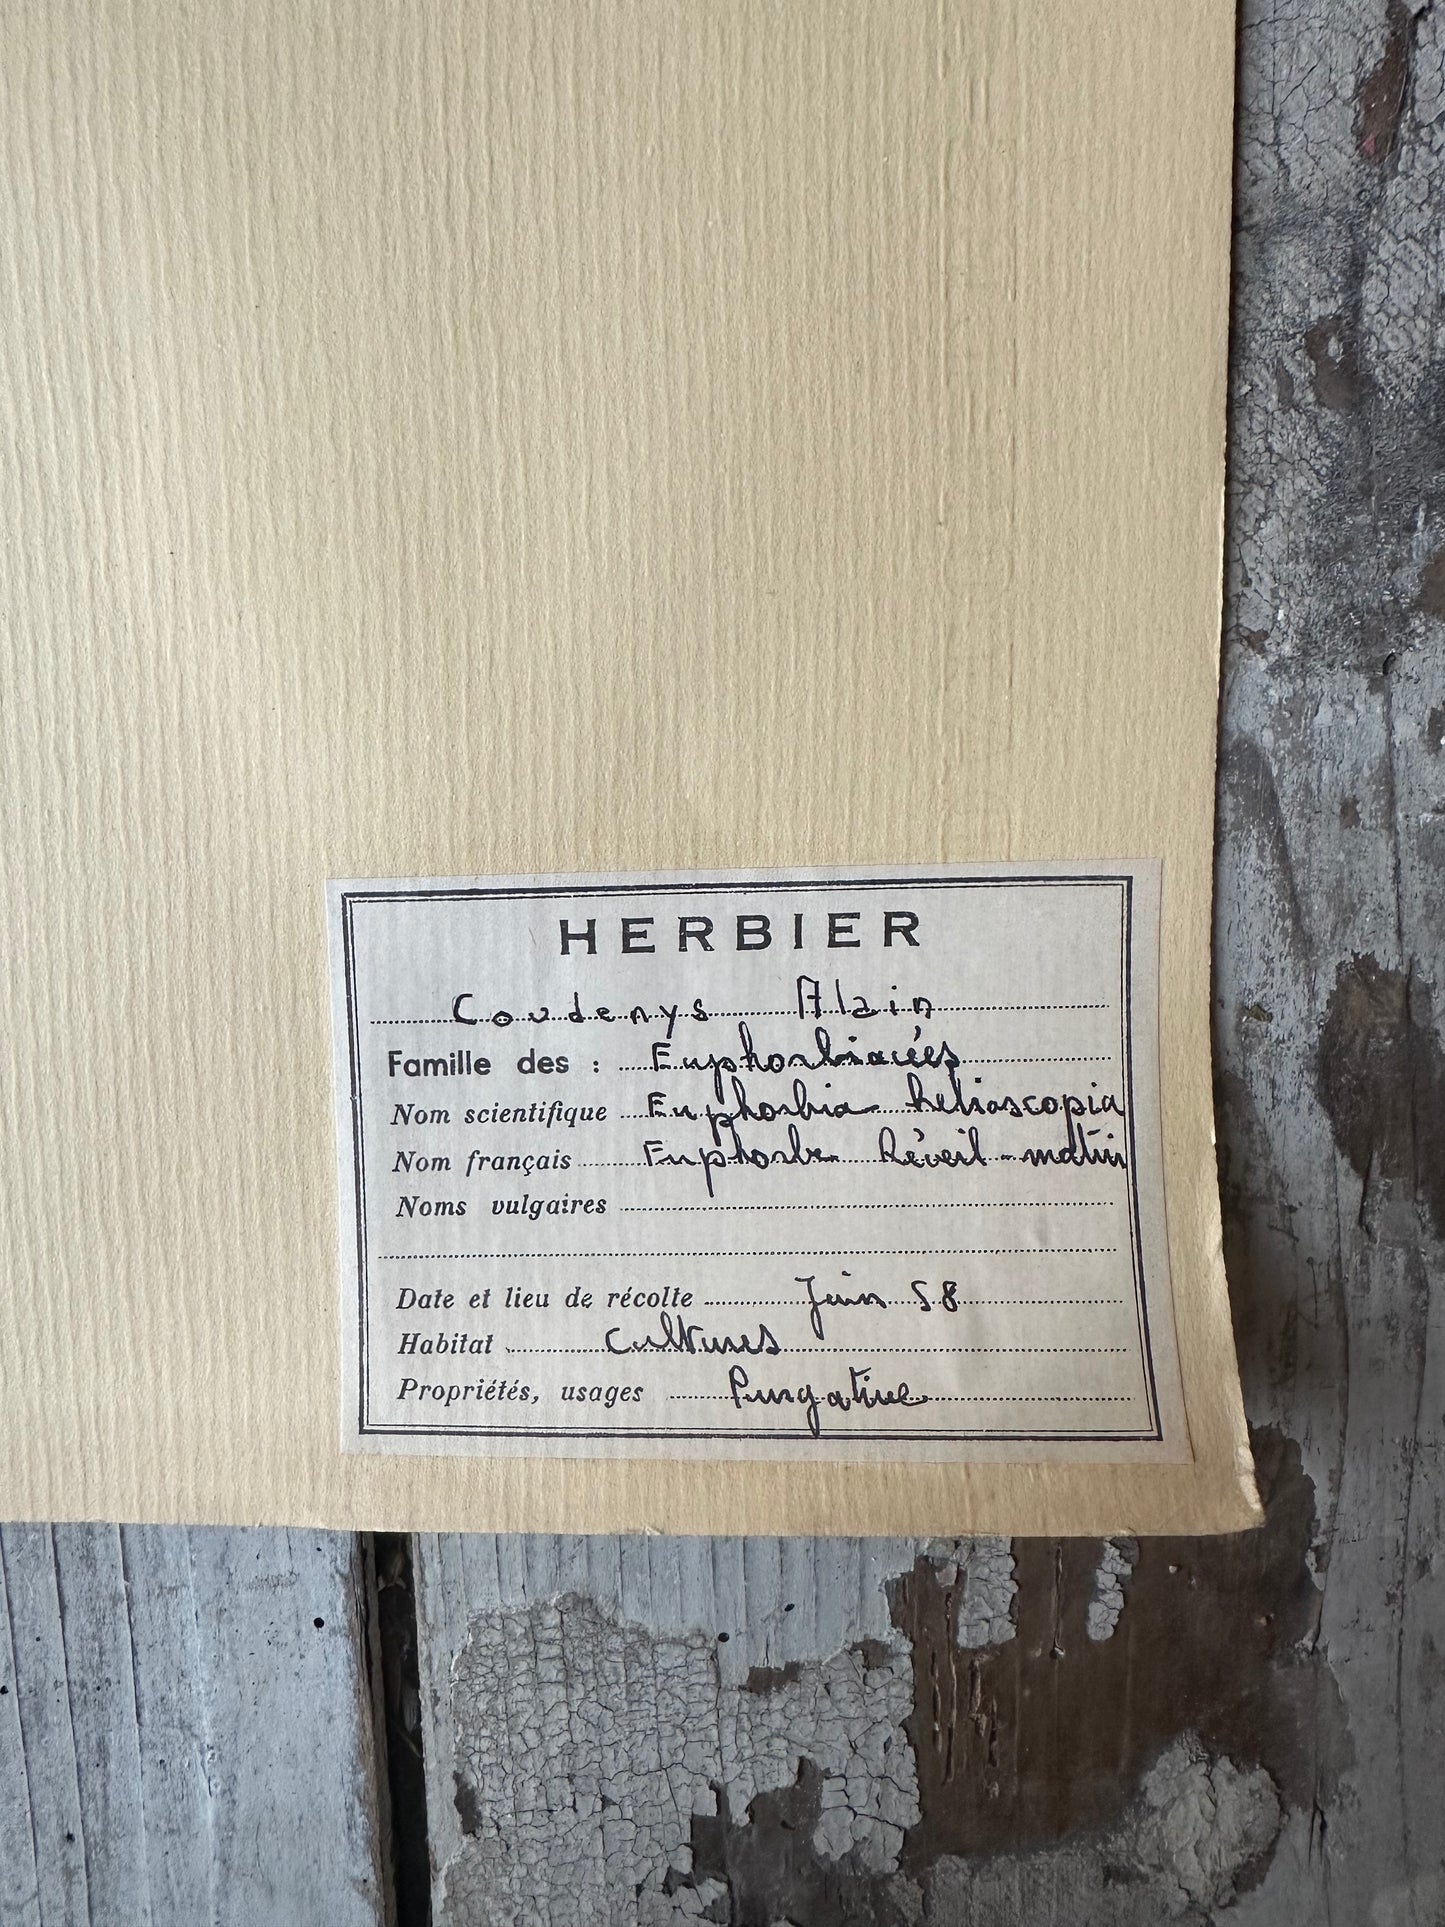 HERBIER
Coudenys Alain
Famille des : Euphorbiacées
Nom scientifique Euphorbia helioscopia
Nom français Euphorbe Réveil-matin
Noms vulgaires
Date et lieu de récolte Juin 58
Habitat Cultures
Propriétés, usages Purgative